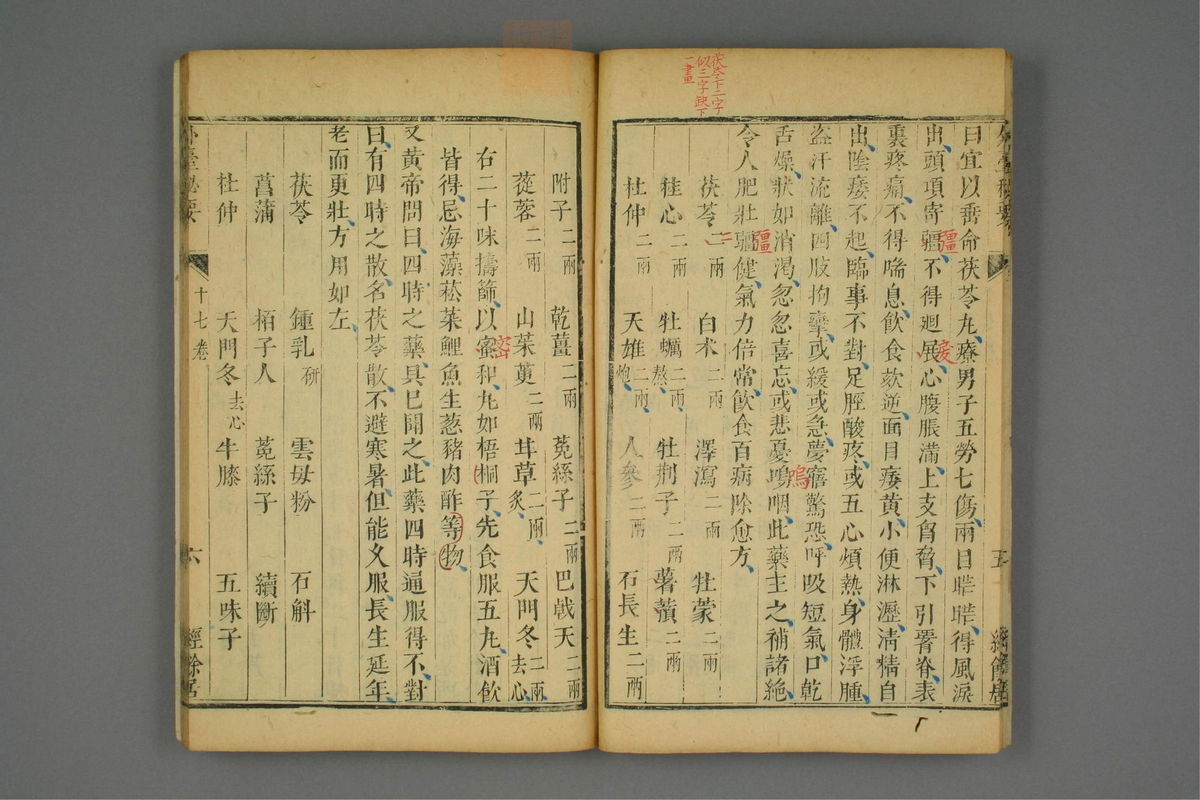 茯苓下二字
似三字缺下
一畫
曰宜以番命茯苓丸療男子五勞七傷兩目𥇀𥇀得風淚
出頭項寄彊不得迴展心腹脹滿上支胷脅下引𦝫脊表
裏疼痛不得喘息飲食欬逆面目痿黃小便淋瀝清精自
出陰痿不起臨事不對足脛酸疼或五心煩熱身體浮腫
盜汗流離四肢拘攣或緩或急夢寤驚恐呼吸短氣口乾
舌燥狀如消渴忽忽喜忘或悲憂嗚咽此藥主之補諸絶
令人肥壯彊健氣力倍常飲食百病除愈方
茯苓二兩 白朮二兩 澤瀉二兩 牡蒙二兩
桂心二兩 牡蠣熬二兩 牡荆子二兩 薯蕷二兩
杜仲二兩 天雄炮二兩 人參二兩 石長生二兩
附子二兩 乾薑二兩 菟絲子二兩 巴戟天二兩
蓯蓉二兩 山茱萸二兩 甘草炙二兩 天門冬去心二兩
右二十味擣篩以蜜和丸如梧桐子先食服五丸酒飲
皆得忌海藻菘菜鯉魚生葱豬肉酢等物
又黃帝問曰四時之藥具已聞之此藥四時通服得不對
曰有四時之散名茯苓散不避寒暑但能久服長生延年
老而更壯方用如左
茯苓 鍾乳研 雲母粉 石斛
菖蒲 栢子人 菟絲子 續斷
杜仲 天門冬去心 牛膝 五味子
外臺秘要 十七卷 六 經餘居